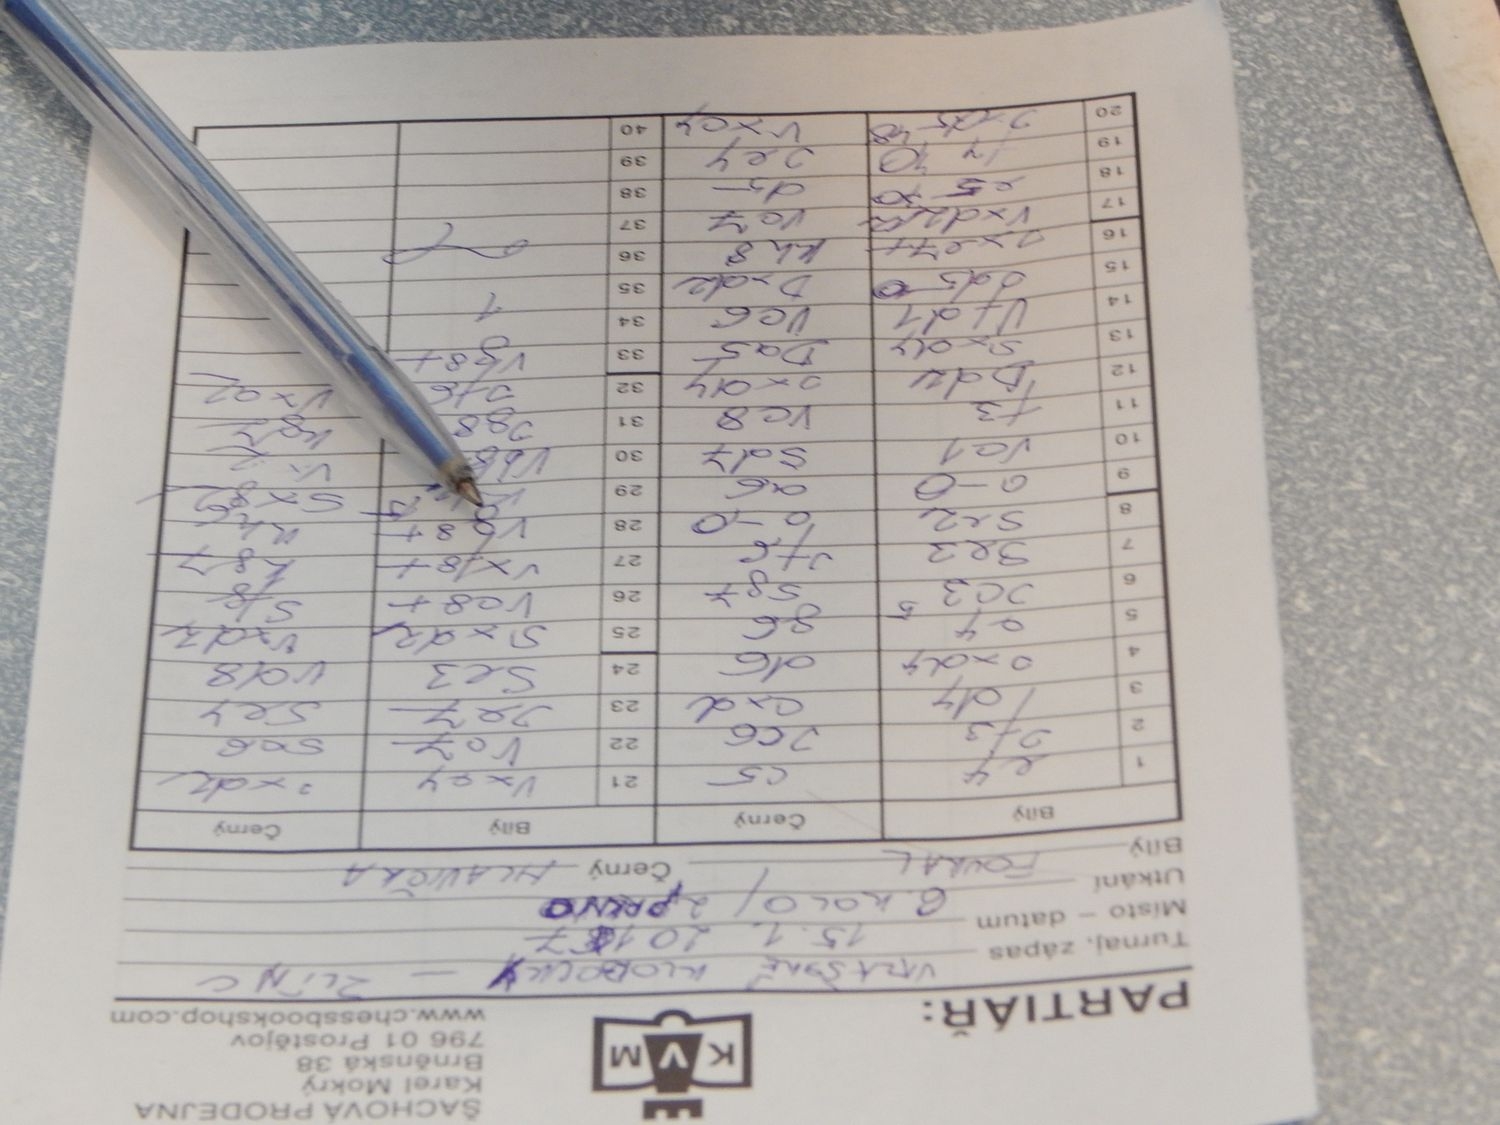 ŠACHOVÁ PRODEJNA
Karel Mokrý
Brněnská 38
796 01 Prostějov
www.chessbookshop.com
K V M
PARTIÁŘ:
Turnaj, zápas KLOBOUKY — ZLÍN C
Místo – datum 15.1. 2017
Utkání 6. KOLO /
Bílý FOUKAL Černý HLAVIČKA
Bílý Černý Bílý Černý
1 e4 c5 21 Vxa4
2 Jf3 Jc6 22 Va7 Sc6
3 d4 cxd 23 Je7 Se4
4 d6 24 Se3 Vd8
5 a4 g6 25 Sxd2 Vxd2
6 Jc3 Sg7 26 Vc8+ Sf8
7 Se3 Jf6 27 Vxf8+ Kg7
8 Se2 0-0 28 Vg8+ Kh6
9 0-0 a6 29
10 Va1 Sd7 30
11 f3 Vc8 31 Jg8
12 Dd2 Jxd4 32 Jf6 Vxa2
13 Sxd4 Da5 33 Vg8+
14 Vfd1 Vc6 34 1
15 Jd5 Dxd2 35
16 Jxe7+ Kh8 36
17 Vxd2 Vc7 37
18 e5 d5 38
19 f4 Je4 39
20 Jxd5 Vxa4 40